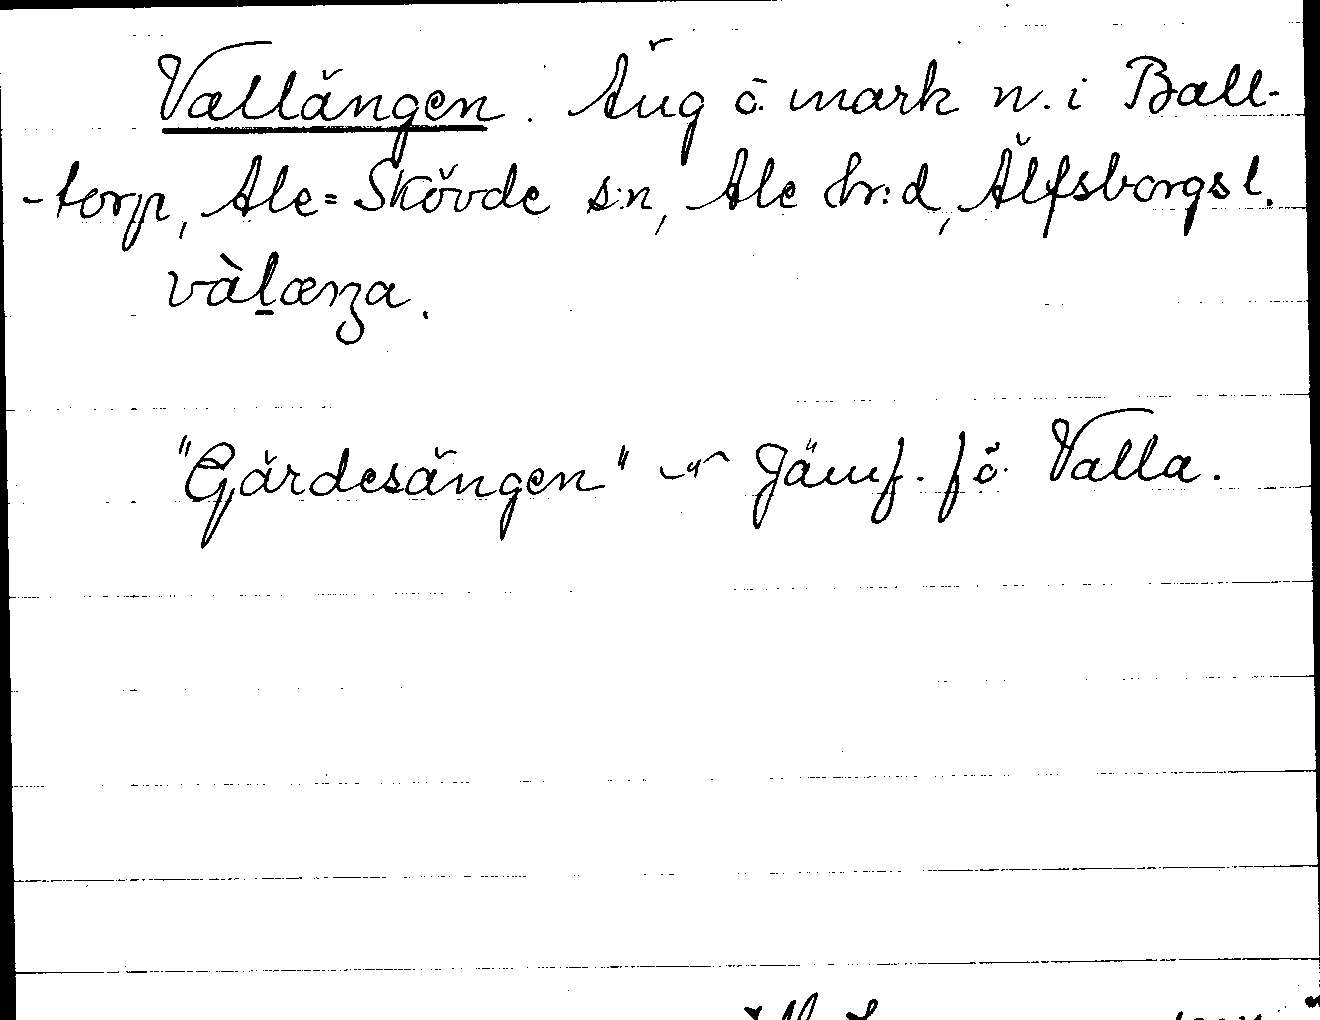 Vallängen. Äng o. mark n. i Ball-
-torp, Ale=Skövde s:n, Ale hr:d, Älfsborgs l.
vàlæŋa.
"Gärdesängen" Jämf. fö. Valla.